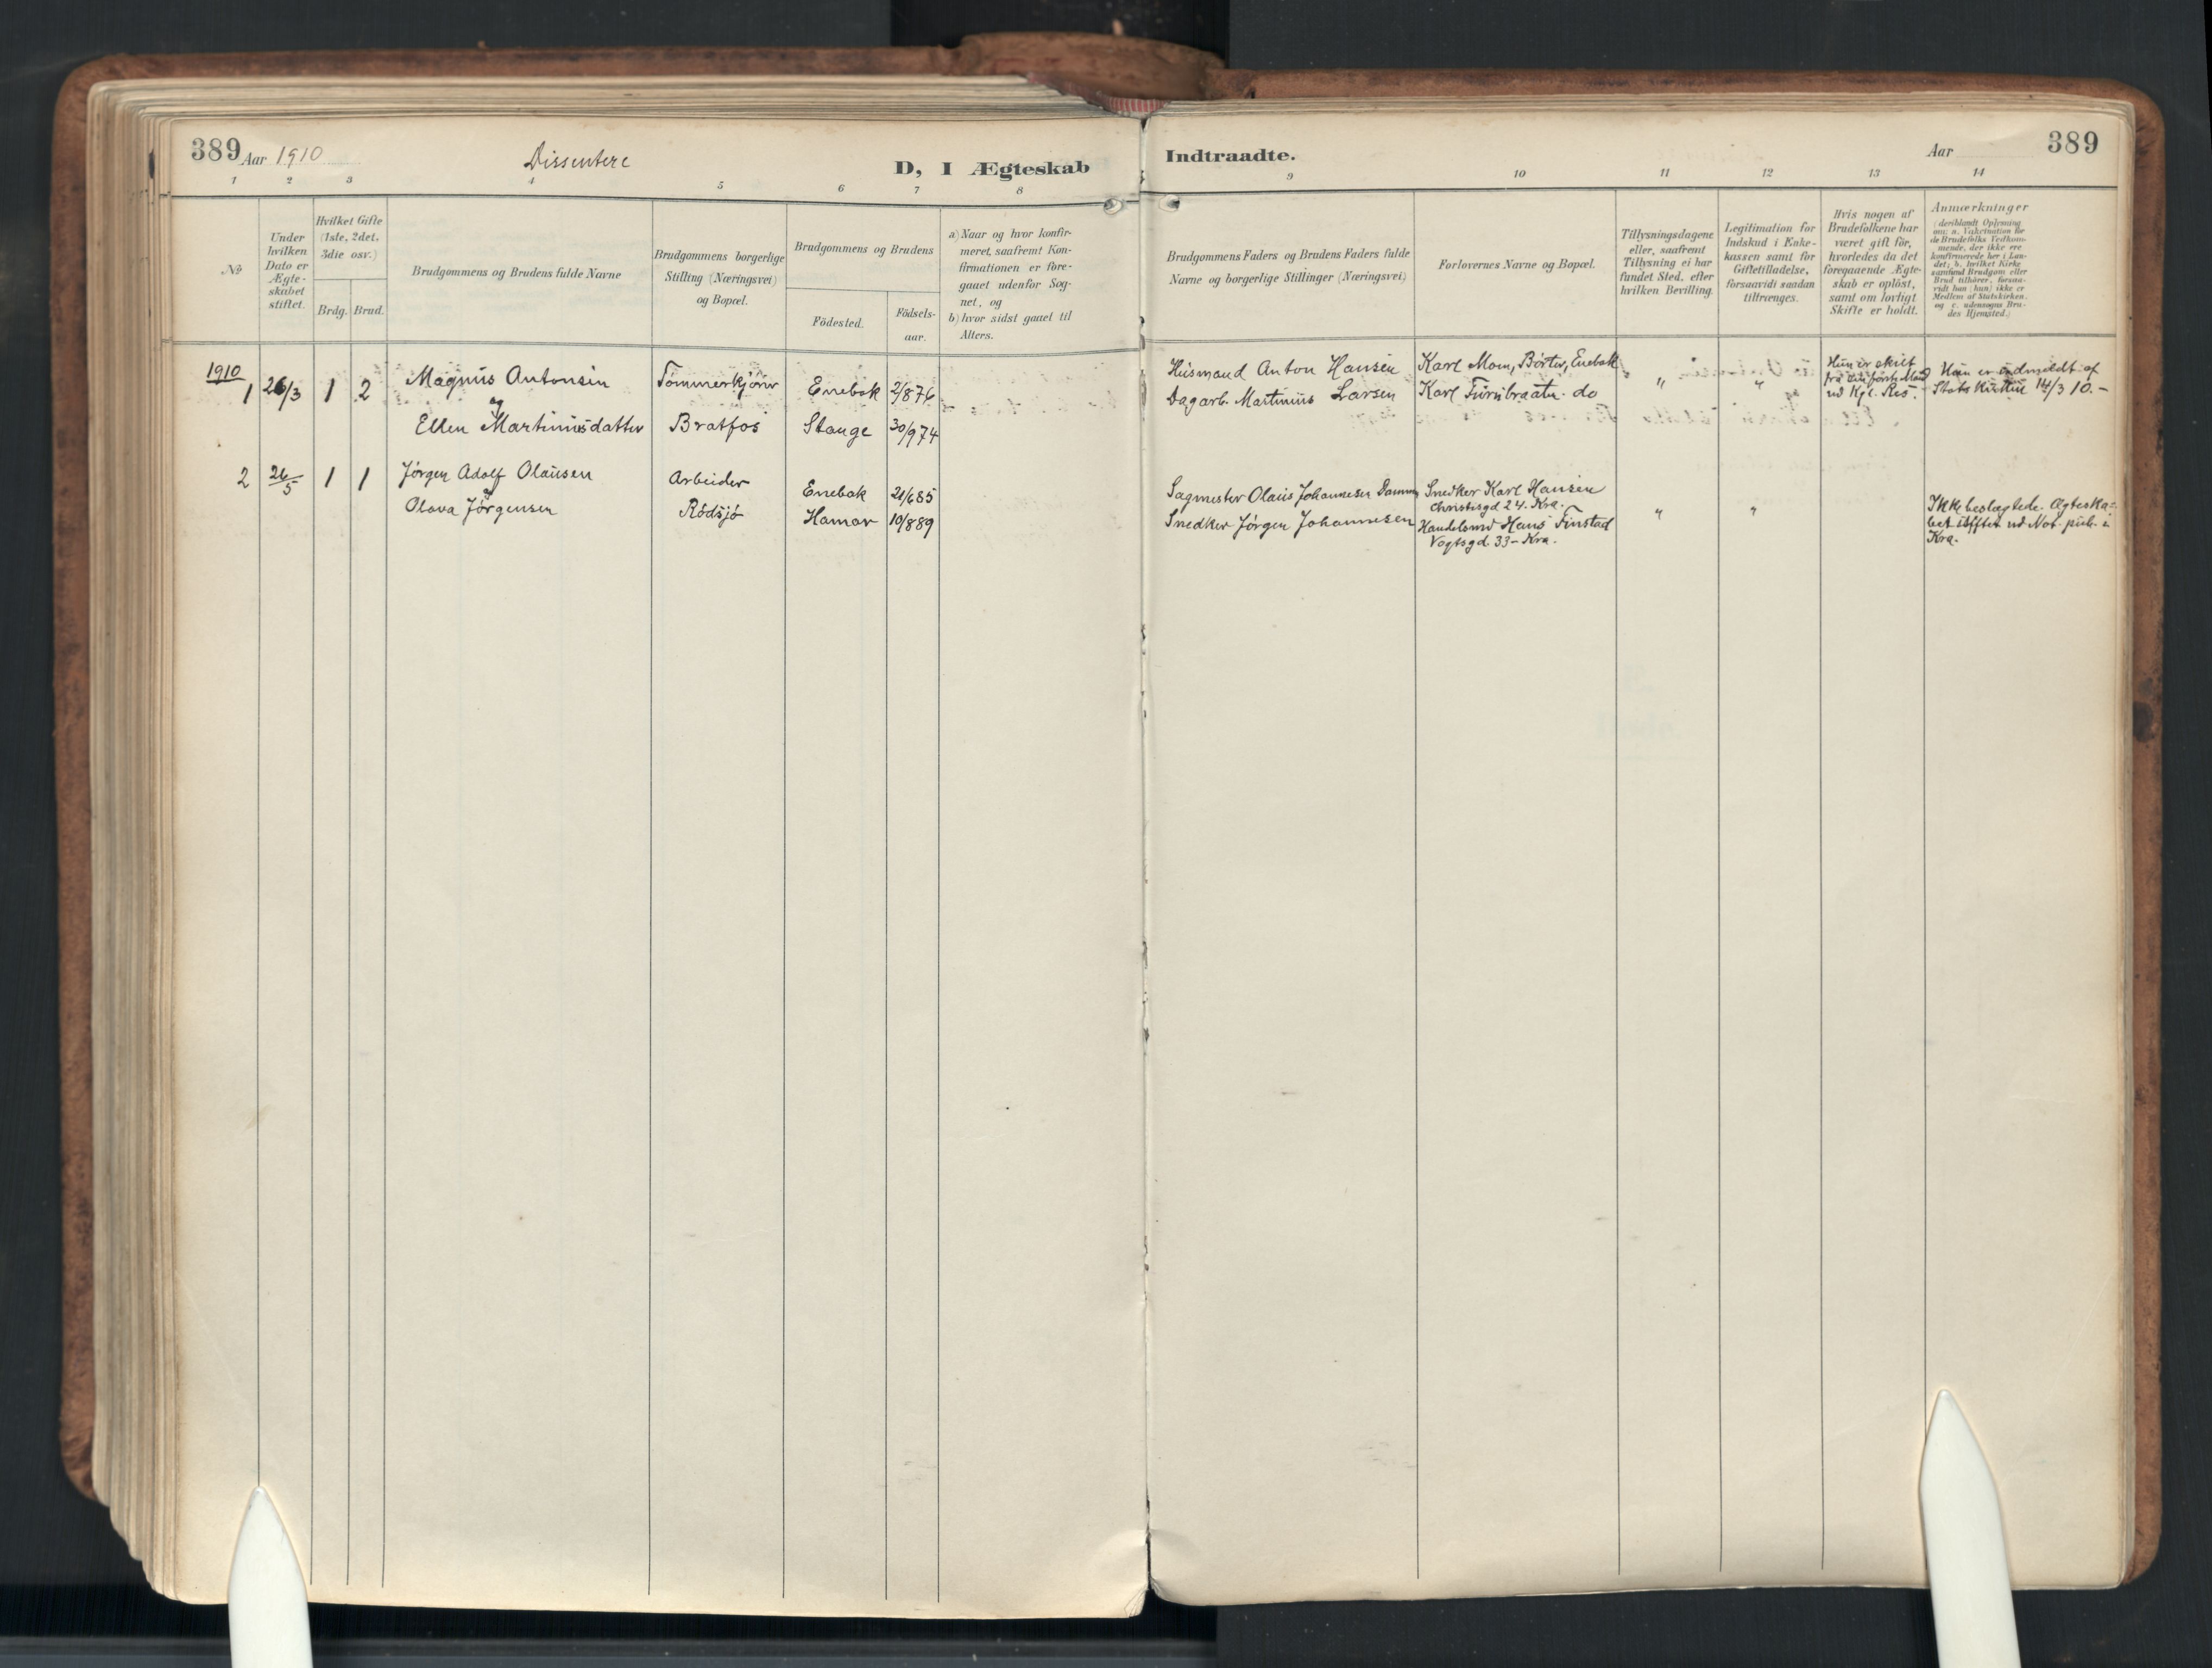 389 Aar 1910
Dissentere
D, I Ægteskab
Indtraadte.
Aar
389
1 2 3 4 5 6 7 8 9 10 11 12 13 14
№
Under
hvilken
Dato er
Ægte-
skabet
stiftet.
Hvilket Gifte
(1ste, 2det,
3die osv.)
Brdg. Brud.
Brudgommens og Brudens fulde Navne
Brudgommens borgerlige
Stilling (Næringsvei)
og Bopæl.
Brudgommens og Brudens
Födested.
Födsels-
aar.
a) Naar og hvor konfir-
meret, saafremt Kon-
firmationen er fore-
gaaet udenfor Sog-
net, og
b) hvor sidst gaaet til
Alters.
Brudgommens Faders og Brudens Faders fulde
Navne og borgerlige Stillinger (Næringsvei)
Forlovernes Navne og Bopæl.
Tillysningsdagene
eller, saafremt
Tillysning ei har
fundet Sted, efter
hvilken Bevilling.
Legitimation for
Indskud i Enke-
kassen samt for
Giftetilladelse,
forsaavidt saadan
tiltrænges.
Hvis nogen af
Brudefolkene har
været gift för,
hvorledes da det
foregaaende Ægte-
skab er oplöst,
samt om lovligt
Skifte er holdt.
Anmærkninger
(deriblandt Oplysning
om: a. Vakcination for
de Brudefolks Vedkom-
mende, der ikke ere
konfirmerede her i Lan-
det; b. hvilket Kirke
samfund Brudgom eller
Brud tilhører, forsaa-
vidt han (hun) ikke er
Medlem af Statskirken,
og c. udensogns Bru-
des Hjemsted.)
1910
1 26/3 1 2 Magnus Antonsen Tømmerkjører Enebak 2/876
og
Ellen Martinusdatter Bratfos Stange 30/974
Husmand Anton Hansen
Dagarb. Martinius Larsen
Karl Moen, Børter, Enebak
Karl Furubraaten do
" "
Hun er skilt
ved Kgl. Res.
Hun er udmeldt af
Stats Kirken 14/3 10.-
2 26/5 1 1 Jörgen Adolf Olausen Arbeider Enebak 21/685
og
Olava Jørgensen Rödsjö Hamar 10/889
Sagmester Olaus Johannesen Dammen
Snedker Jørgen Johannesen
Snedker Karl Hansen
Christisgd 24. Kra.
Handelsmd Hans Finstad
Vogtsgd. 33 - Kra.
" "
Ikke beslægtede. Ægteska-
bet stiftet ved Not. pub. i
Kra.